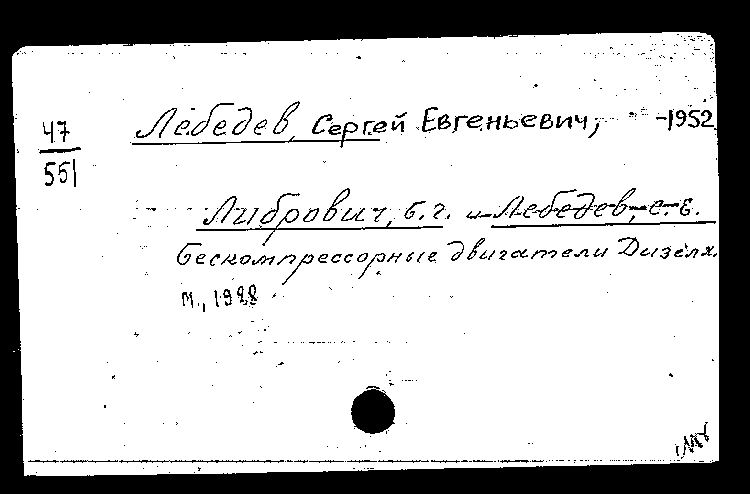 47
551
Лебедев, Сергей Евгеньевич, -1952
Либрович, Б.Г. и Лебедев, С.Е.
Бескомпрессорные двигатели Дизеля.
М., 1928